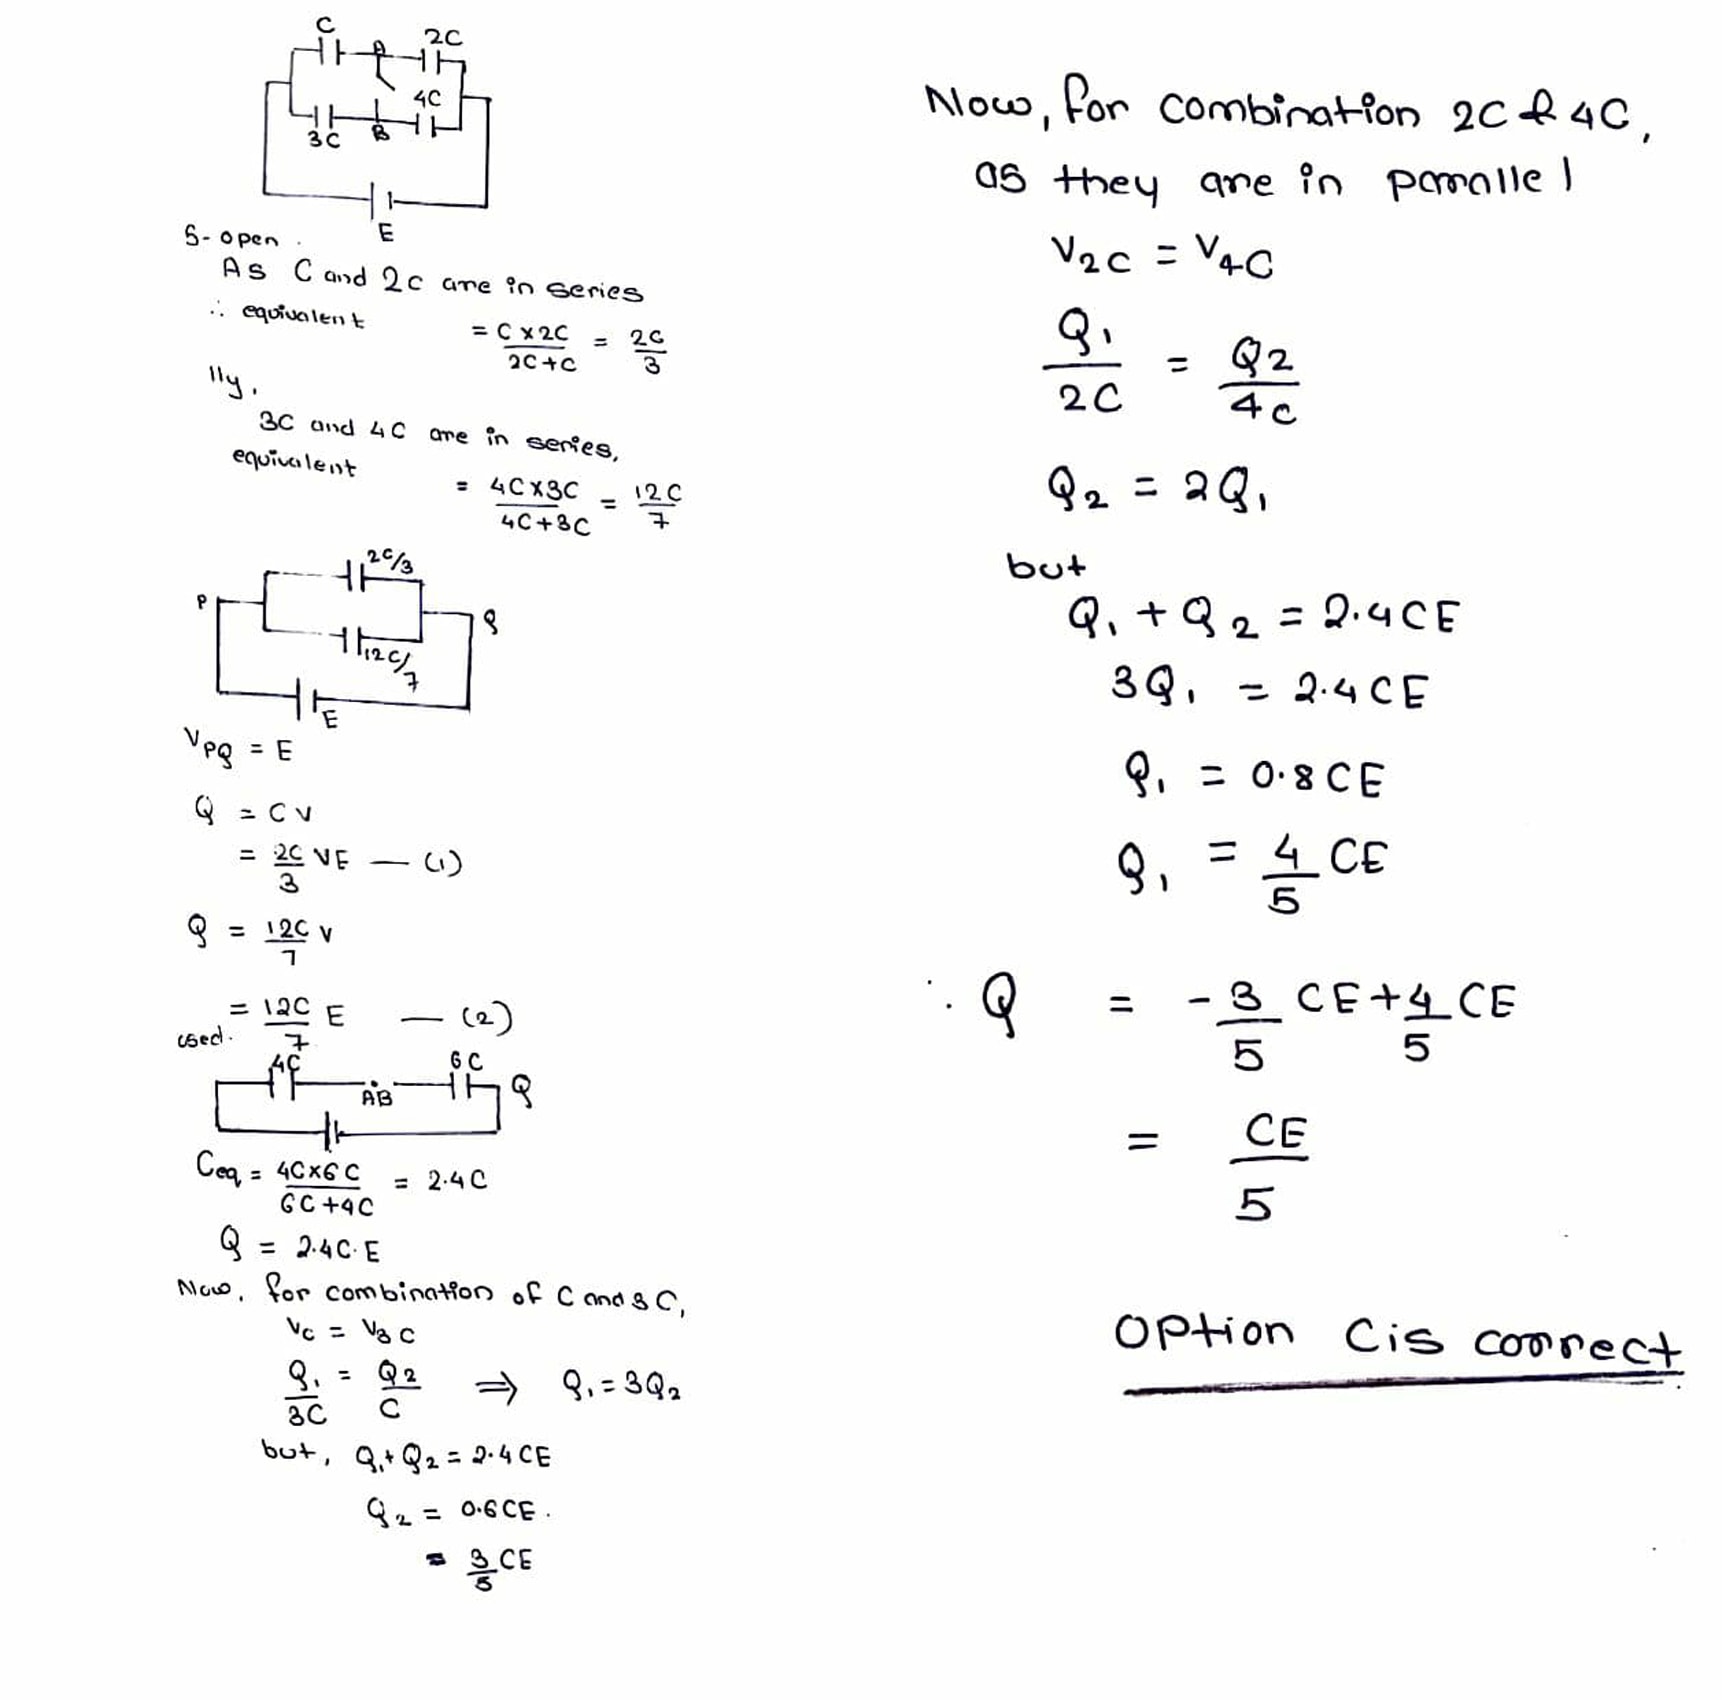 C
A
2C
4C
3C
B
E
S- open.
As C and 2C are in series
∴ equivalent = C x 2C / 2C + C = 2C / 3
lly,
3C and 4C are in series,
equivalent = 4C x 3C / 4C + 3C = 12C / 7
2C/3
P
Q
12C/7
E
V PQ = E
Q = CV
= 2C/3 VE — (1)
Q = 12C/7 V
= 12C/7 E — (2)
osed.
4C
6C
AB
Q
Ceq = 4C x 6C / 6C + 4C = 2.4C
Q = 2.4C. E
Now, for combination of C and 3C,
Vc = V3C
Q1/3C = Q2/C ⇒ Q1 = 3Q2
but, Q1 + Q2 = 2.4 CE
Q2 = 0.6CE.
= 3/5 CE
Now, for combination 2C & 4C,
as they are in parallel
V2C = V4C
Q1/2C = Q2/4C
Q2 = 2Q1
but
Q1 + Q2 = 2.4CE
3Q1 = 2.4CE
Q1 = 0.8CE
Q1 = 4/5 CE
∴ Q = -3/5 CE + 4/5 CE
= CE/5
Option C is correct